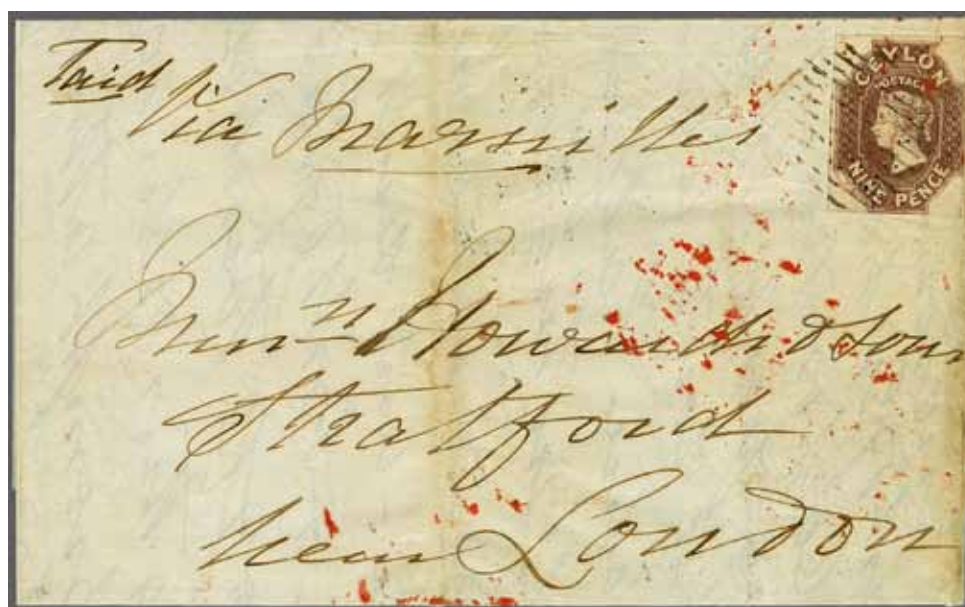 Paid
Via Marseilles
CEYLON
POSTAGE
NINE PENCE
Howarth & Sons
Stratford
near London